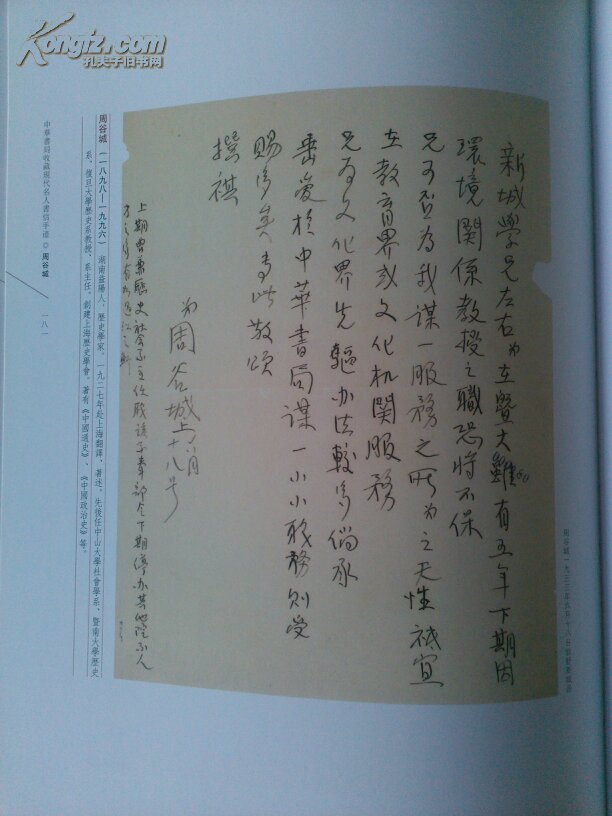 Kongfz.com
孔夫子旧书网
新城学兄左右弟在暨大雖有五年下期因
環境関係教授之職恐將不保
兄可否為我谋一服務之所弟之天性祗宜
在教育界或文化机関服務
兄为文化界先驅办法較多倘承
垂愛於中华書局谋一小小職務则受
賜多矣專此敬頌
撰祺
弟周谷城上
八月十八号
上期曾兼歷史社会系主任職該系奉部令下期停办其他
周谷城一九三三年八月十八日
周谷城（一八九八—一九九六） 湖南益陽人。歷史學家。一九二七年赴上海翻譯、著述。先後任中山大學社會學系、暨南大學歷史
系、復旦大學歷史系教授、系主任。創建上海歷史學會。著有《中國通史》、《中國政治史》等。
中華書局收藏現代名人書信手迹 ◎ 周谷城
一八一